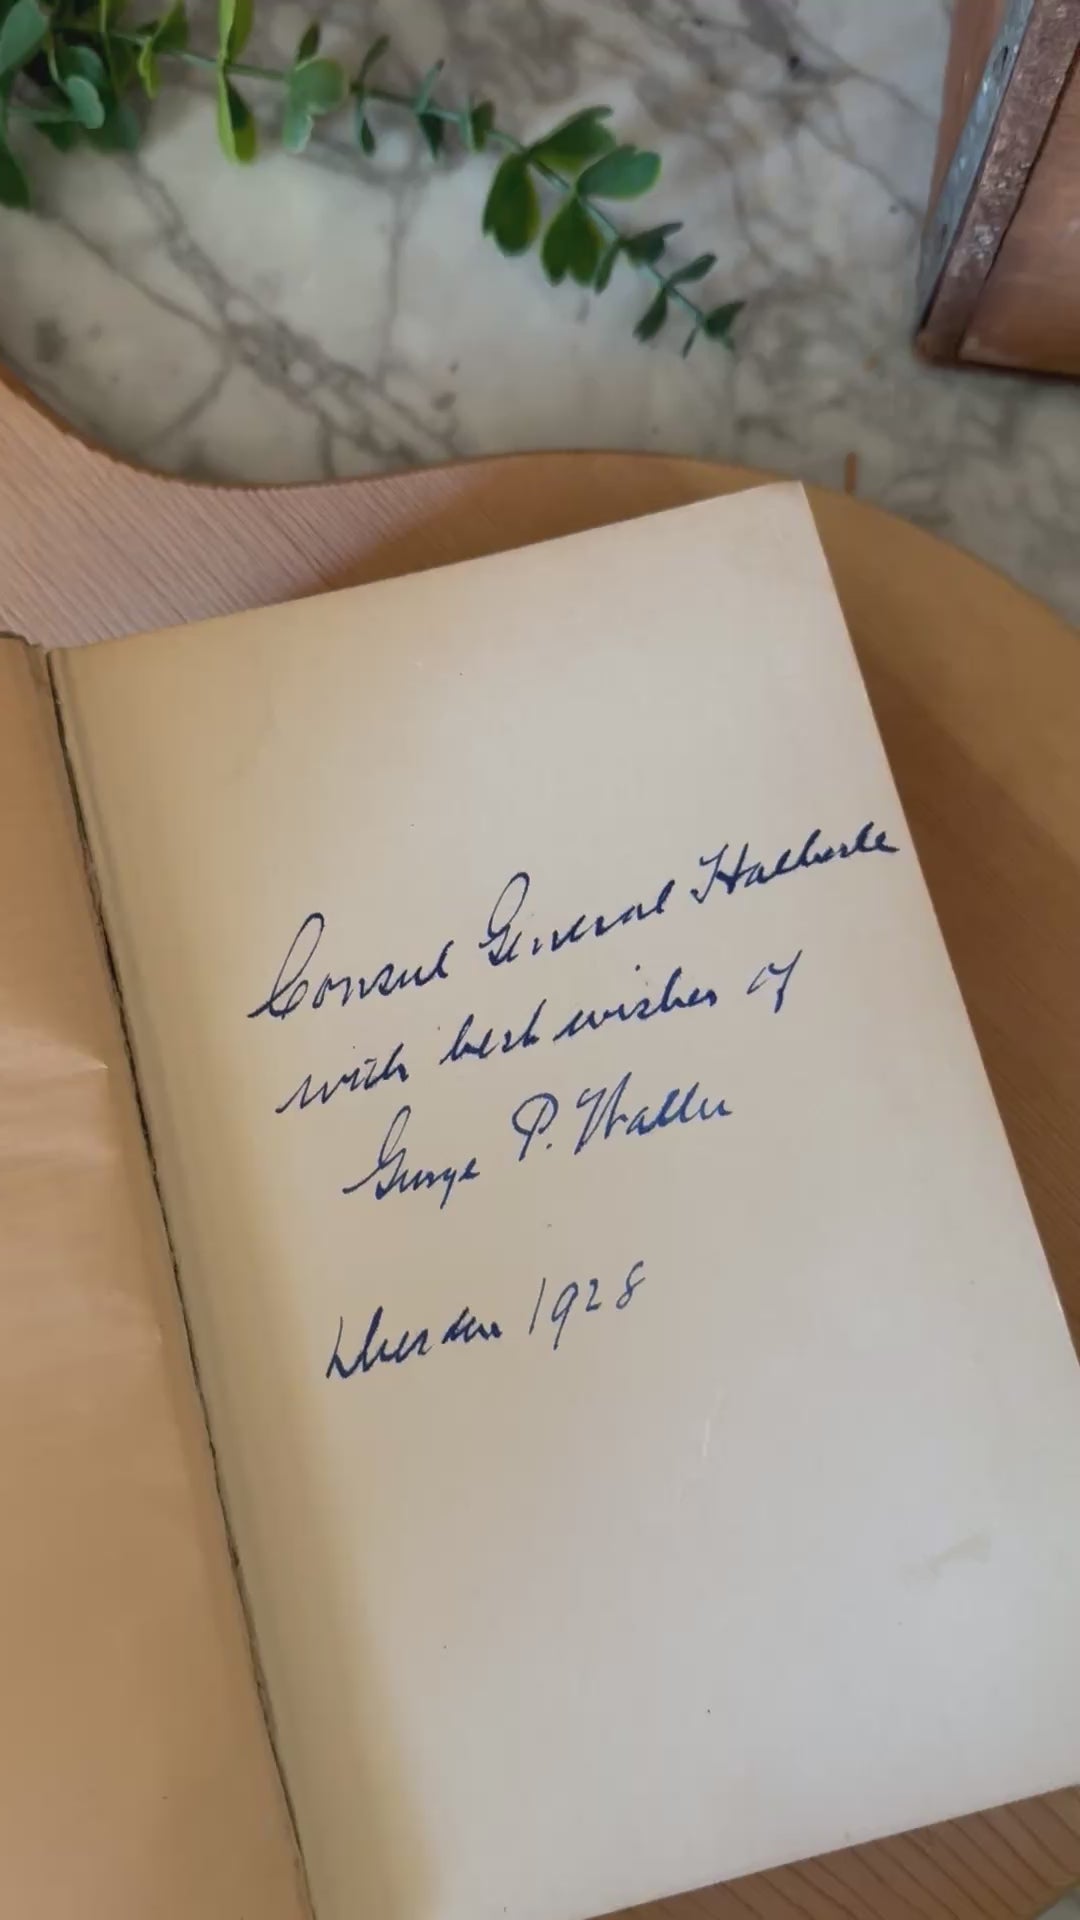 Consul General
with best wishes of
George P. Waller
Dresden 1928